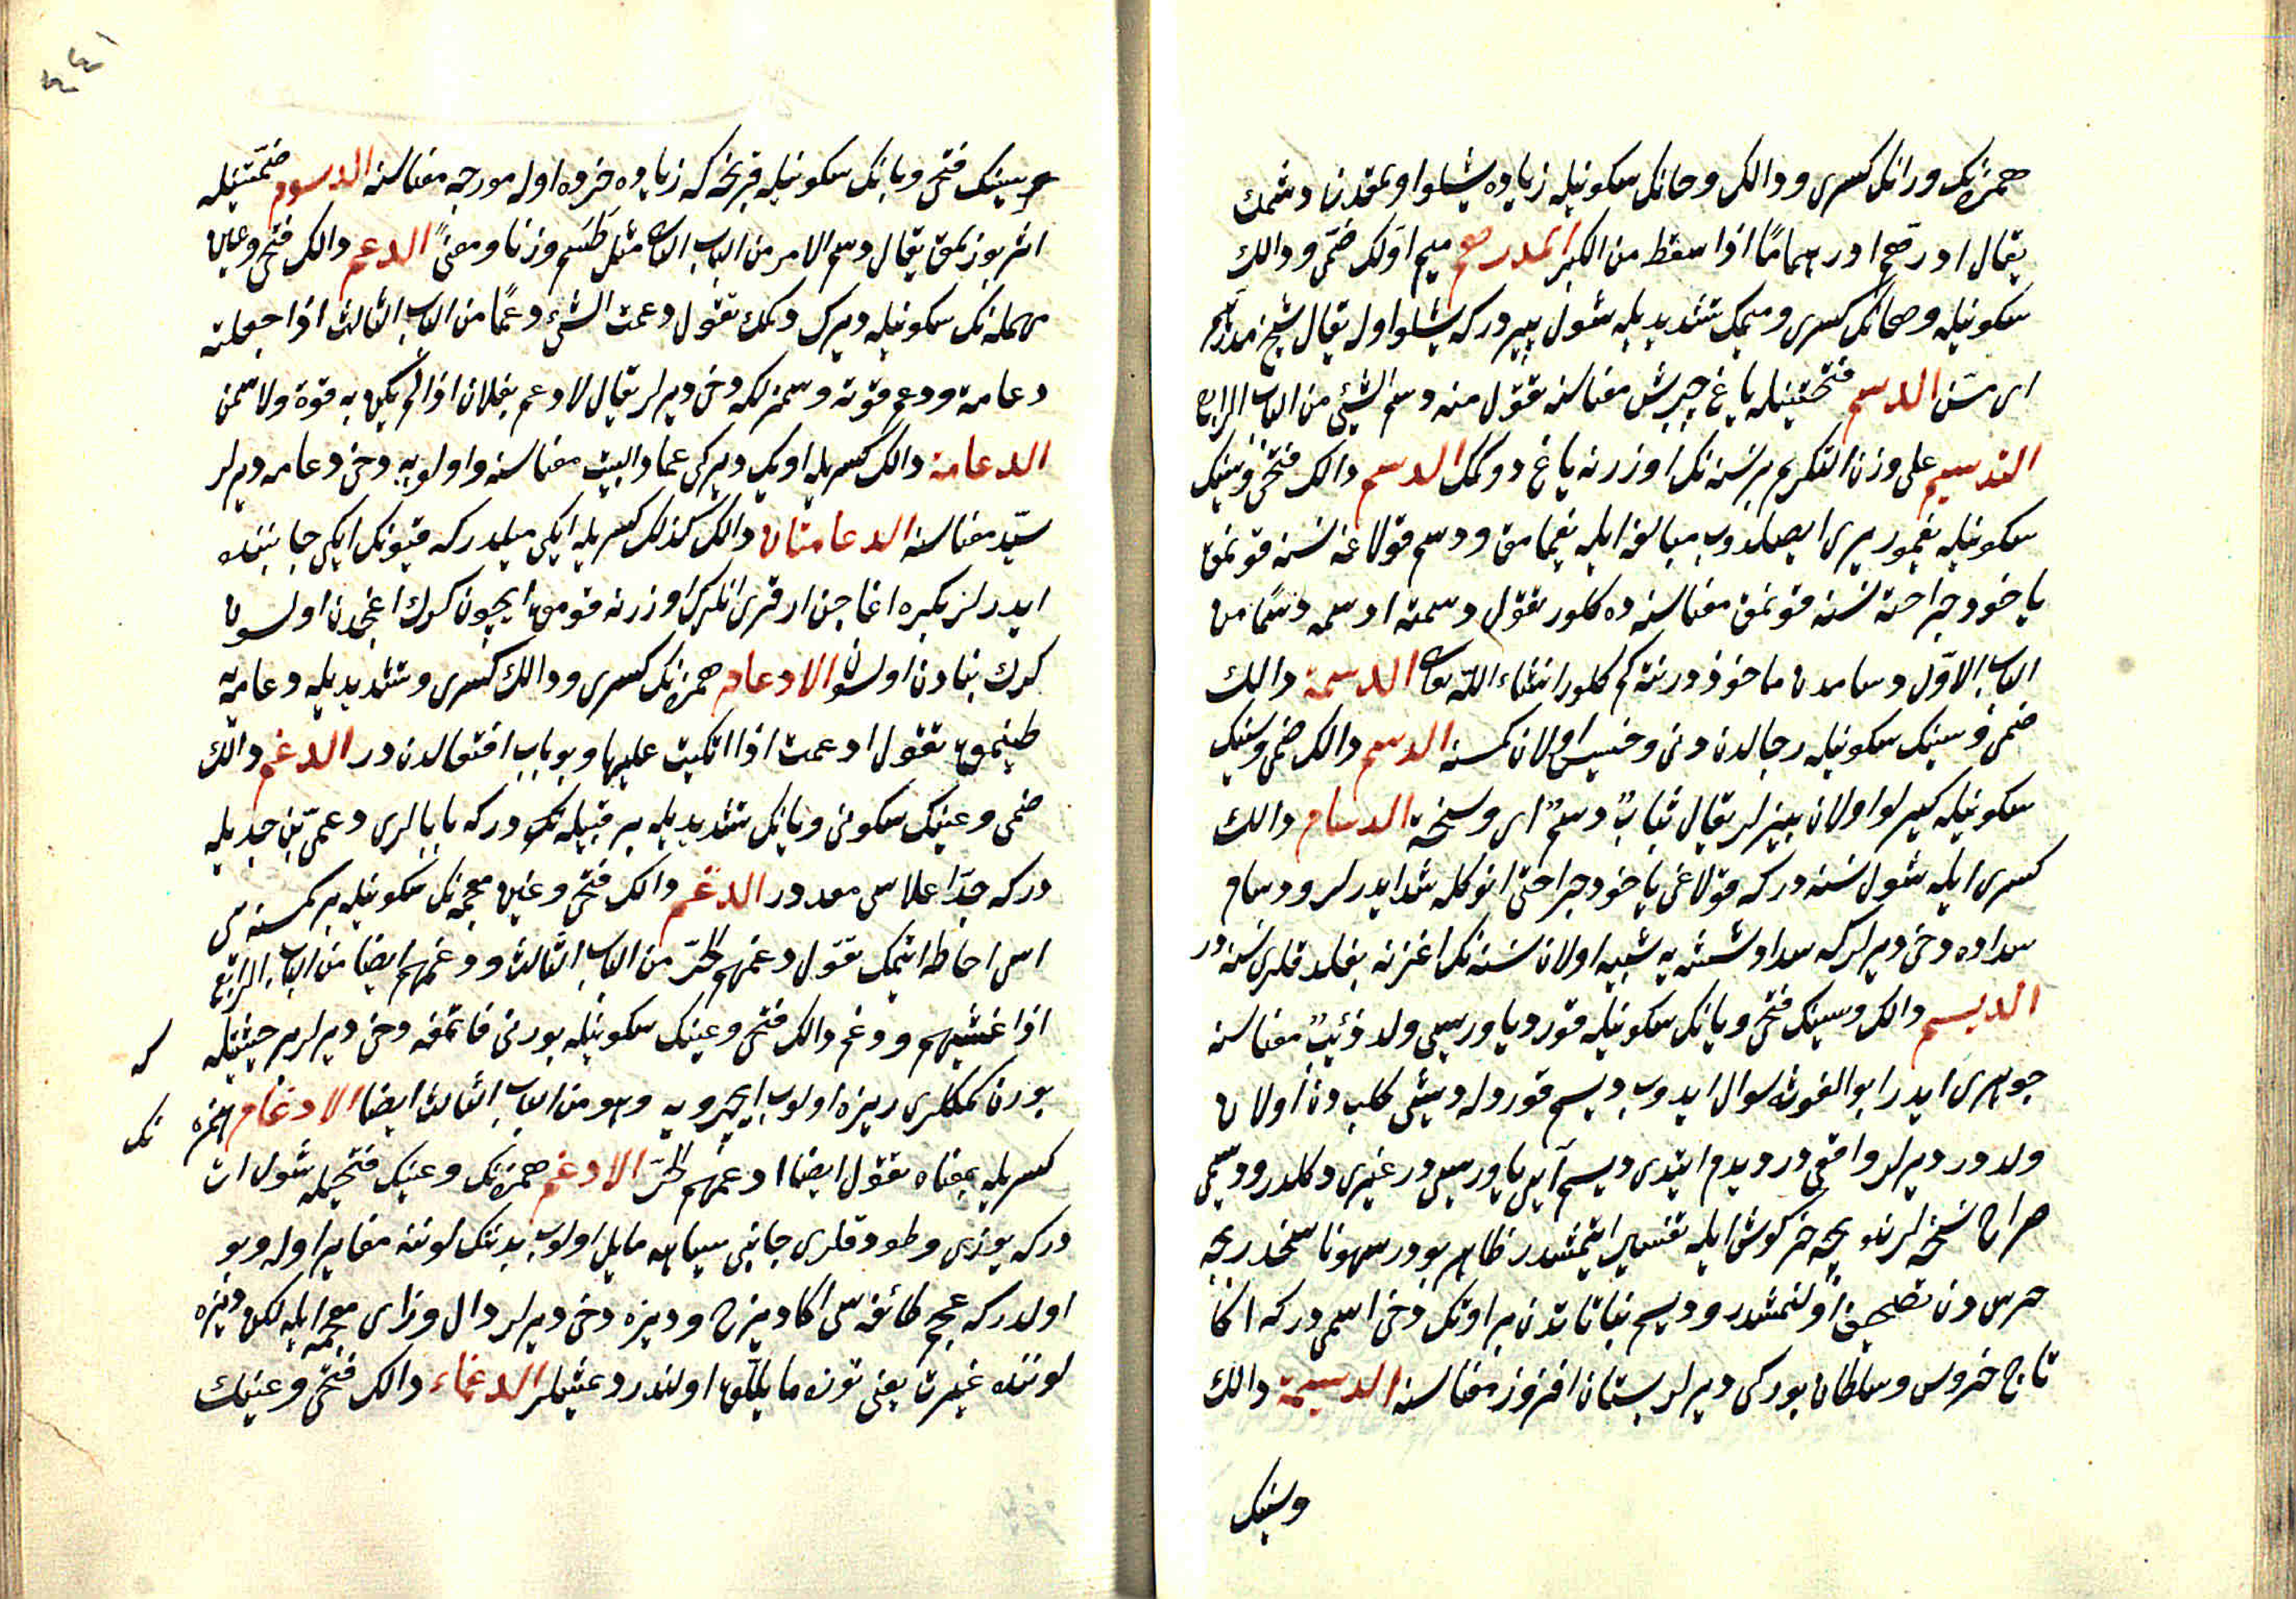 همزه‌نك و رانك كسرى و دالك و حانك سكونيله زياده يشلو اولمقدن دشمك
يقال ادرمّح ادرهماما اذا سقط من الكبر المدرهم ميم اولك ضمى و دالك
سكونيله و هانك كسرى و ميمك تشديديله شول پيردركه يشلو اوله يقال شيخ مدرهم
اى مسنّ الدسم فتحتينيله ياغ چپرش معناسنه تقول منه دسم الشئ من الباب الرابع
التدسيم على وزن التكريم برنسنه‌نك اوزرنه ياغ دوكمك الدسم دالك فتحى و سينك
سكونيله يغمور يرى ايصلدوب مبالغه ايله يغمامق و دسم قولاغه نسنه قونمق
ياخود جراحته نسنه قونمق معناسنه ده كلور تقول دسمته ادسمه دسما من
الباب الاوّل دسامدن ماخوذدر نته‌كم كلور انشاء الله تعالى الدسمة دالك
ضمى و سينك سكونيله رجالدن دنى و خسيس اولان كمسنه الدسم دالك ضمى و سينك
سكونيله كيرلو اولان بيزلر يقال ثيابٌ دسمٌ اى وسخة الدسام دالك
كسرى ايله شول نسنه‌دركه قولاغى ياخود جراحتى انوكله شد ايدرلر و دسام
سداده دخى ديرلركه سداد شيشه‌يه شبيه اولان نسنه‌نك اغزنه بغلدقلرى نسنه‌در
الديسم دالك و سينك فتحى و يانك سكونيله قورد ياوريسى ولد ذئبٌ معناسنه
جوهرى ايدر ابو الغوثه سوال ايدوب ديسم قوردله ديشى كلب‌دن اولان
ولددر ديرلر واقعى‌در ديدم ايتدى ديسم آيى ياوريسى‌در غيرى دكلدر و ديسمى
صراح نسخه‌لرنده بچه خركوش ايله تفسير ايتمشدر ظاهر بودر سهو ناسخدر بچه
خرس‌دن تصحيف اولنمشدر و ديسم نباتاتدن بر اوتك دخى اسمى‌دركه اكا
تاج خروس و سلطان بوركى ديرلر بستان افروز معناسنه الديسمة دالك
و سينك
و سينك فتحى و يانك سكونيله قرنجه‌كه زياده خرده اوله مورجه معناسنه الدسوم ضمّتينيله
اثر بوزلمق يقال دسم الامر من الباب الثانى مثل طسم وزنا و معنىً الدعم دالك فتحى و عين
مهمله‌نك سكونيله ديرك دكمك تقول دعمت الشئ دعمًا من الباب الثالث اذا جعلته
دعامة و دعم قوّته و سمزلكه دخى ديرلر يقال لا دعم بفلان اذا لم يكن به قوة و لا سمن
الدعامة دالك كسريله اويك ديركى عماد البيت معناسنه و اولويه دخى دعامه ديرلر
سيّد معناسنه الدعامتان دالك كذلك كسريله ايكى ميلدركه قيونك ايكى جانبنده
ايدرلر بكره اغاجن ارقرى انلرك اوزرنه قومق ايچون كرك اغجدن اولسون
كرك بنادن اولسون الادعام همزه‌نك كسرى و دالك كسرى و تشديديله دعامه‌يه
طينمق تقول ادعمت اذا اتكيت عليها و بو باب افتعالدن در الدعم دالك
ضمى و عينك سكونى و يانك تشديديله بر قبيله‌نك در كه بابالرى دعمىّ بن جديله
دركه جدّ اعلاسى معددر الدغم دالك فتحى و غين معجمه‌نك سكونيله بر كمسنه‌يى
اسى احاطه ايتمك تقول دغمهم الحرّ من الباب الثالث و دغمهم ايضا من الباب الرابع
اذا غشيهم و دغم دالك فتحى و غينك سكونيله بورنى قاتمغه دخى ديرلر بر حيثيتله كه
بورن كمكلرى ريزه اولوب ايچرويه و هو من الباب الثالث ايضا الادغام همزه‌نك
كسريله بمعناه تقول ايضا ادغمهم الحرّ الادغم همزه‌نك و غينك فتحيله شول ات
دركه يوزى و طودقلرى جانبى سياهه مايل اولوب بدننك لوننه مغاير اوله و بو
اولدركه عجم طائفه‌سى اكا ديزج و ديزه دخى ديرلر دال و زاى معجمه ايله لكن ديزه
لوننده غبرت يعنى توزه مايللق اولندر دعشلر الدغماء دالك فتحى و غينك